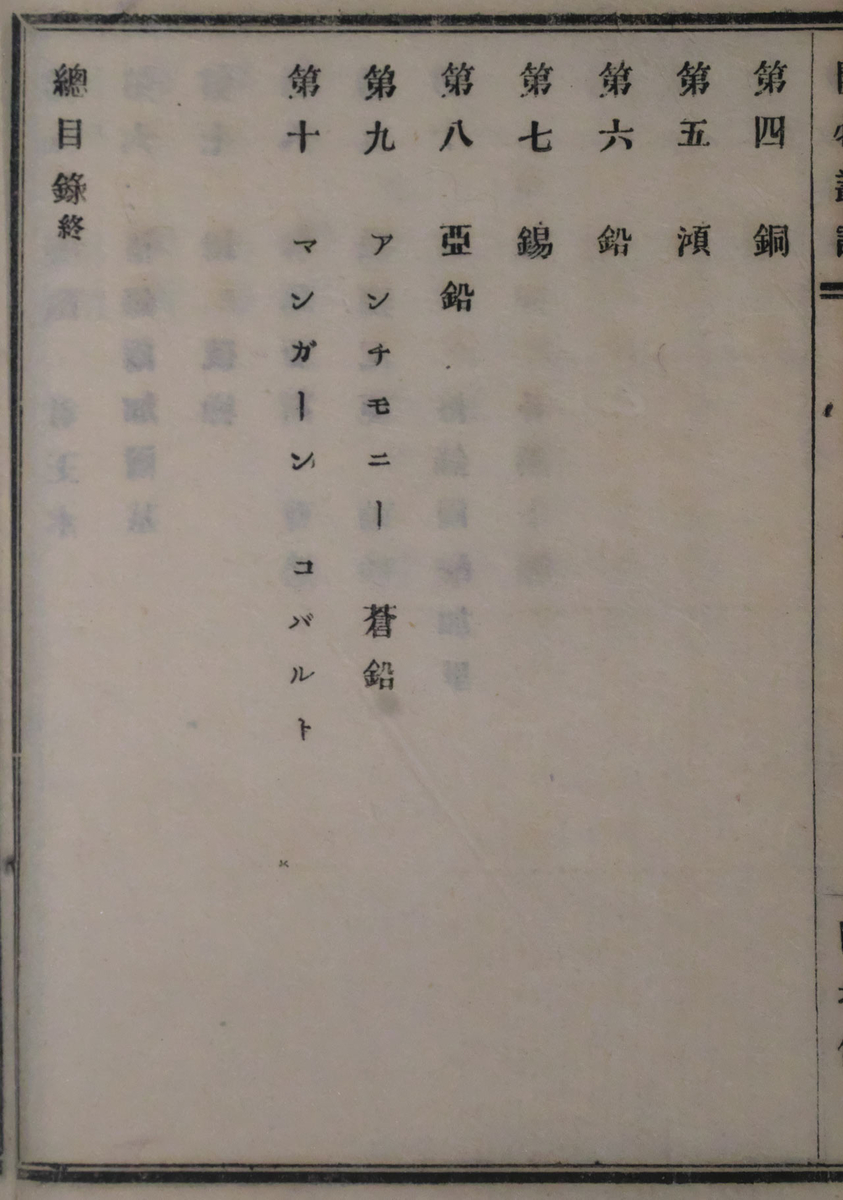 第四　銅
第五　澒
第六　鉛
第七　錫
第八　亞鉛
第九　アンチモニー　蒼鉛
第十　マンガーン　コバルト
總目錄終